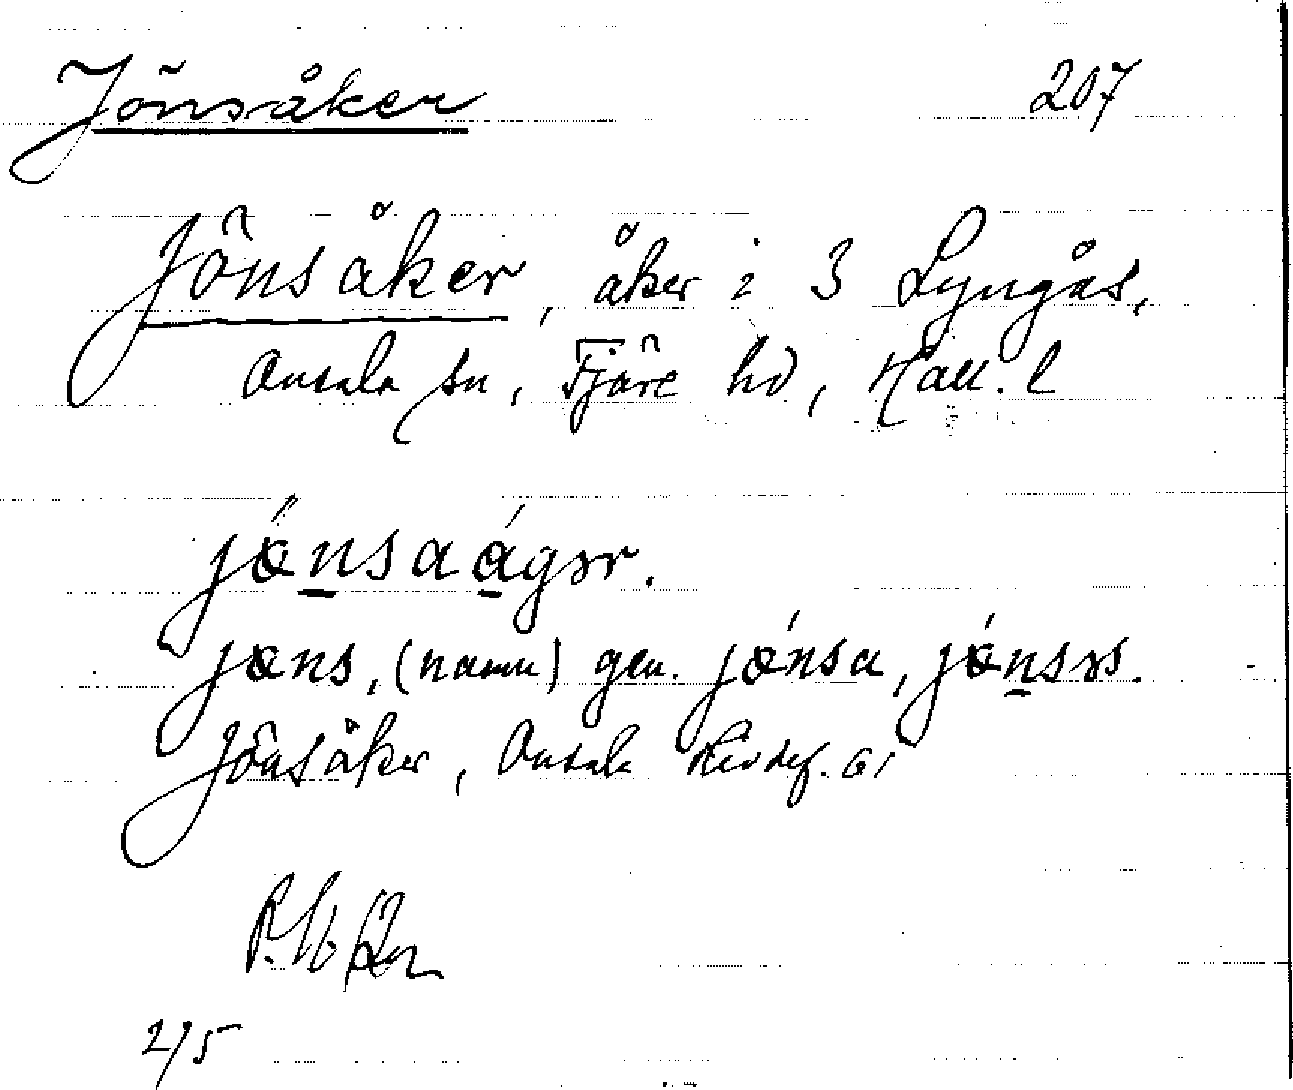 Jönsåker 207
Jönsåker, åker i 3 Lyngås,
Onsala sn, Fjäre hd, Hall. l
jǿnsaágər.
jøns, (namn) gen. jǿnsa, jǿnsəs.
Jönsåker, Onsala 61
2/5